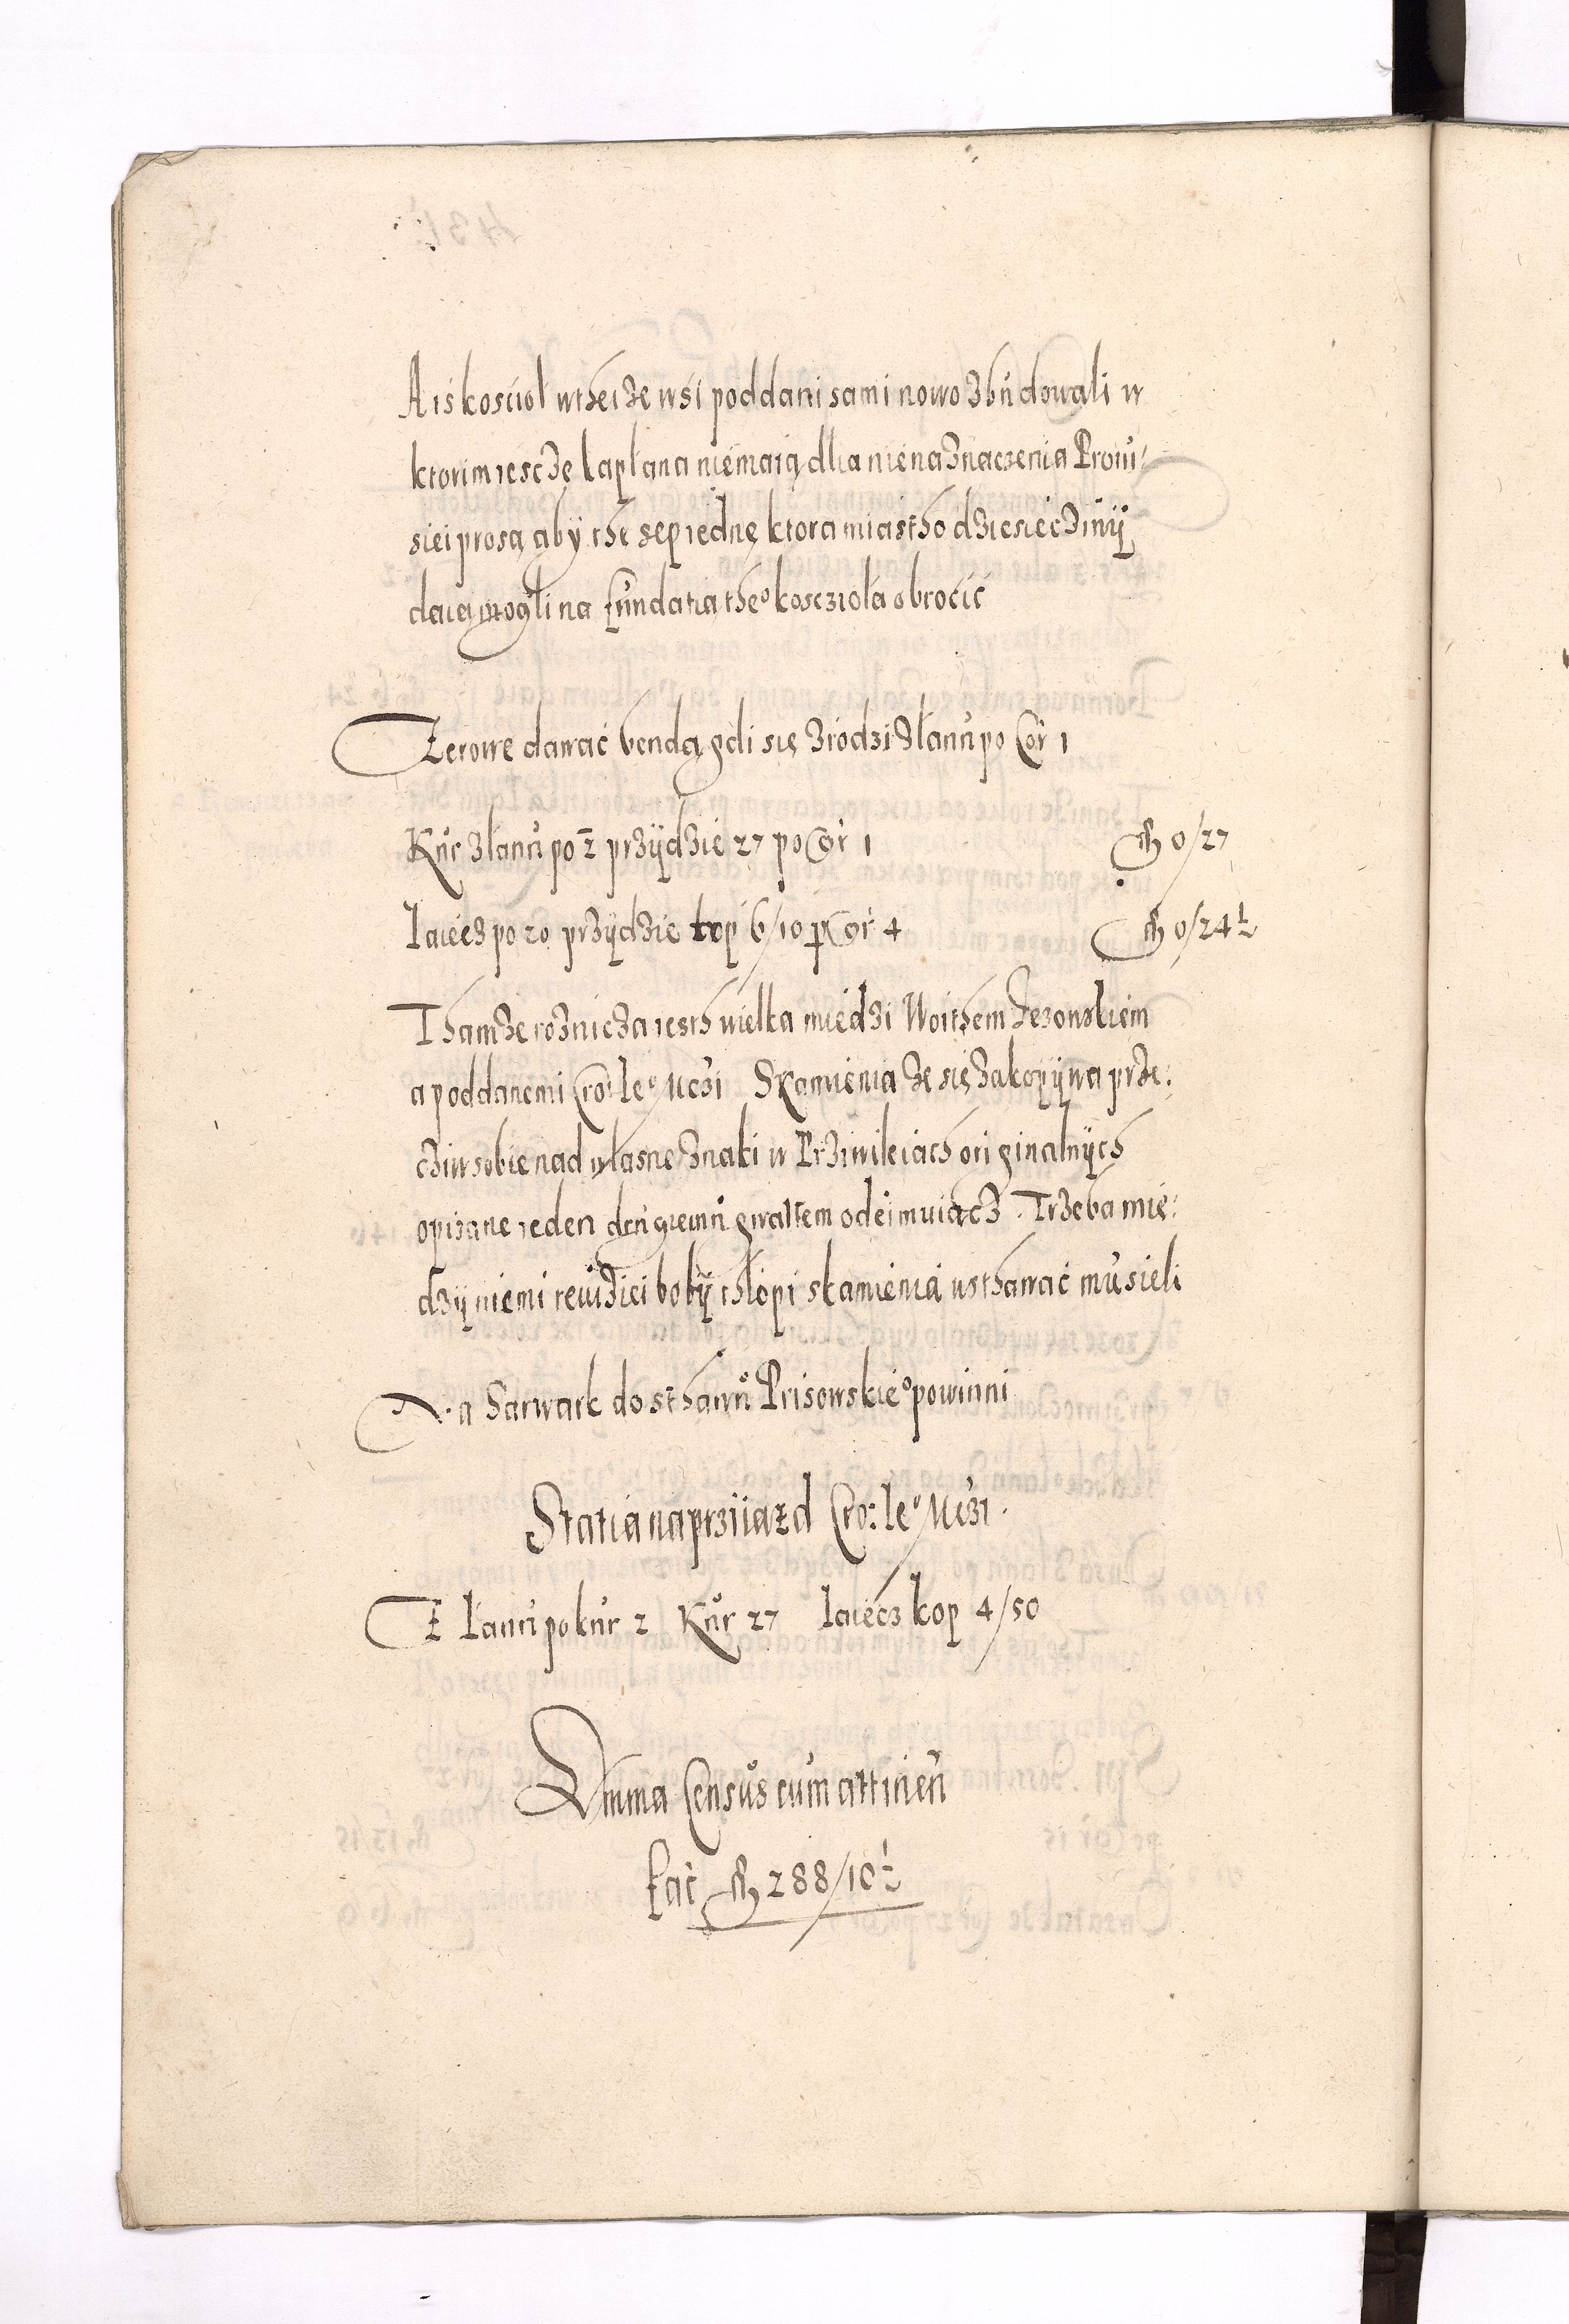 A iś kościoł wtheize wsi poddani sami nowo zbudowali w
ktorim iescze kapłana niemaią dlia nienaznaczenia Prowi:
siei proszą aby the sep iednę ktora miastho dziesięcziny
daią mogli na fundatia theo koscziola obrocić
Żerowe dawać bendą gdi się zrodzi z łanu po Cor 1
Kur z łanu po 2 przydzie 27 po Gr 1 0/27
Iaiecz po 20 przydzie kop 6/10 p Gr 4 0/24½
Thamże roznicza iesth wielka miedzi Woithem
a poddanemi Cro: Ieo Mczi Skamienia że się zakopywa prze:
cziw sobie nad własne znaki w Prziwileiach originalnych
opisane ieden drugiemu gwałtem odeimuiącz. Trzeba mię:
dzy niemi rewiziei boby chłopi skamienia wsthawać musieli
Na Sarwark do sthawu Prisowskieo powinni
Statia na prziiazd Cro: Ieo Mczi.
Z Łanu po kur 2 Kur 27 Iaiecz kop 4/50
Summa Census cum attinen
fac 288/10½